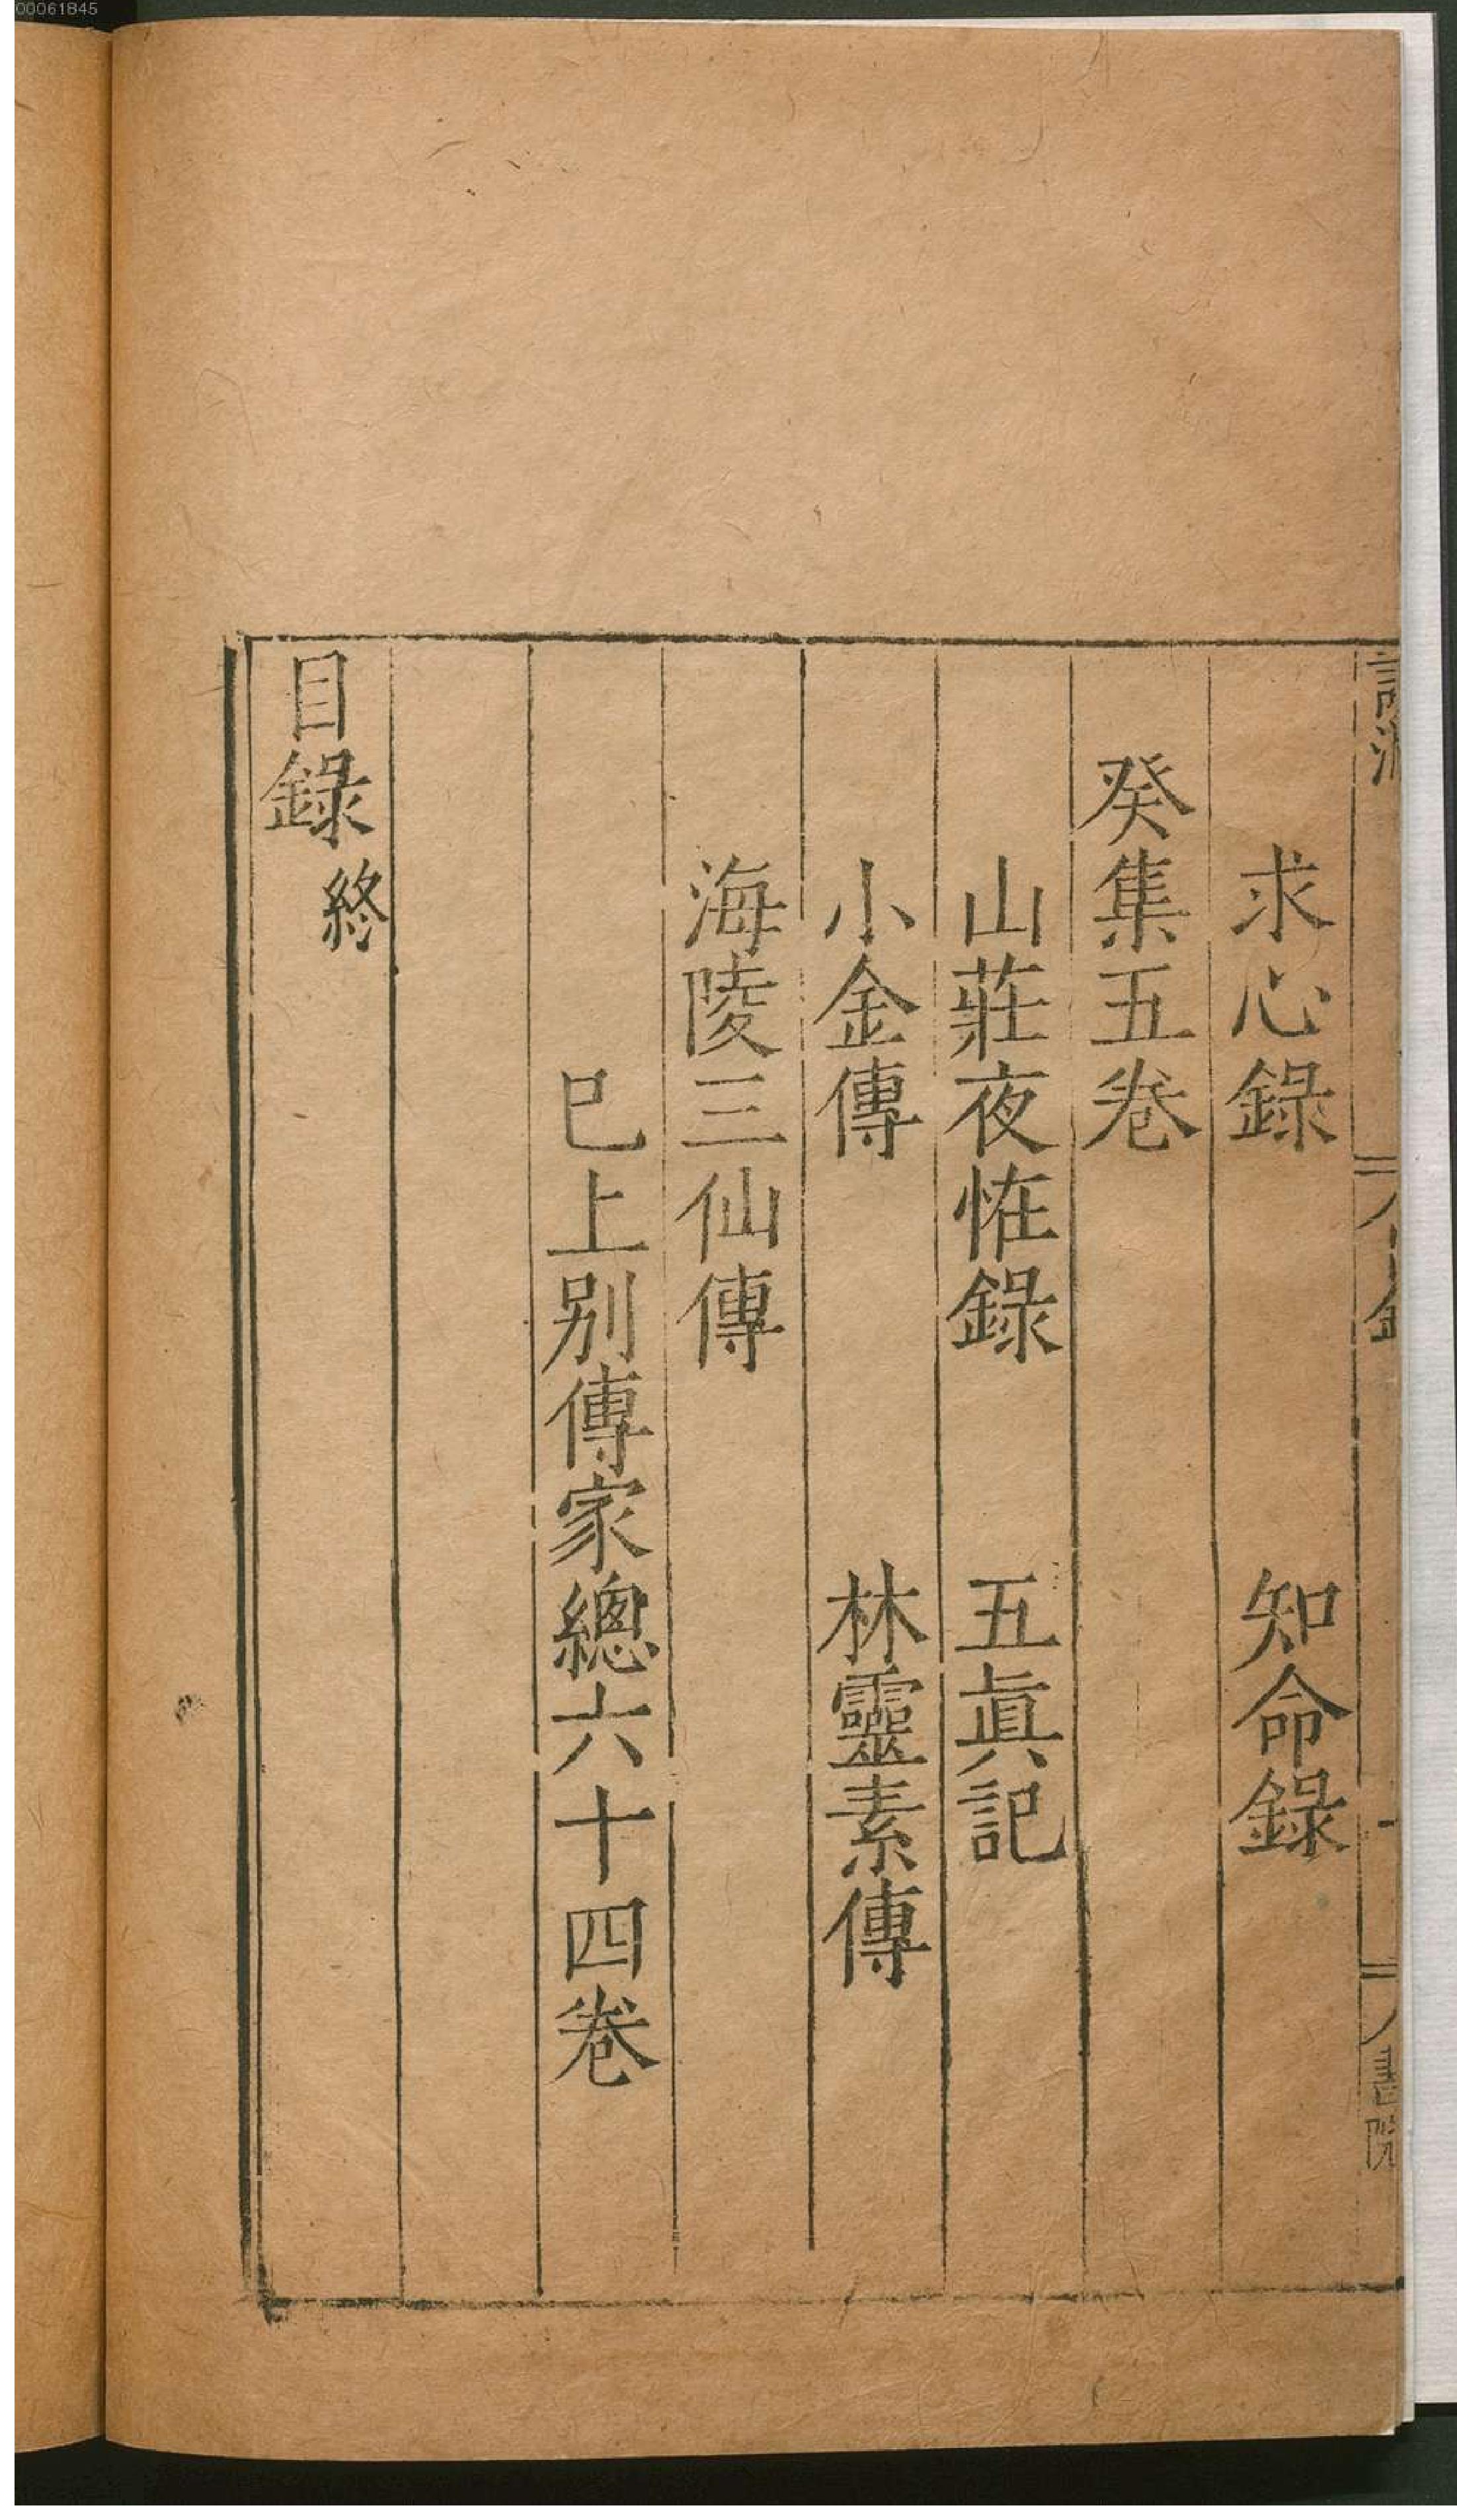 00061845
求心錄 知命錄
癸集五卷
山莊夜恠錄 五眞記
小金傳 林靈素傳
海陵三仙傳
巳上别傳家總六十四卷
目錄終
書院